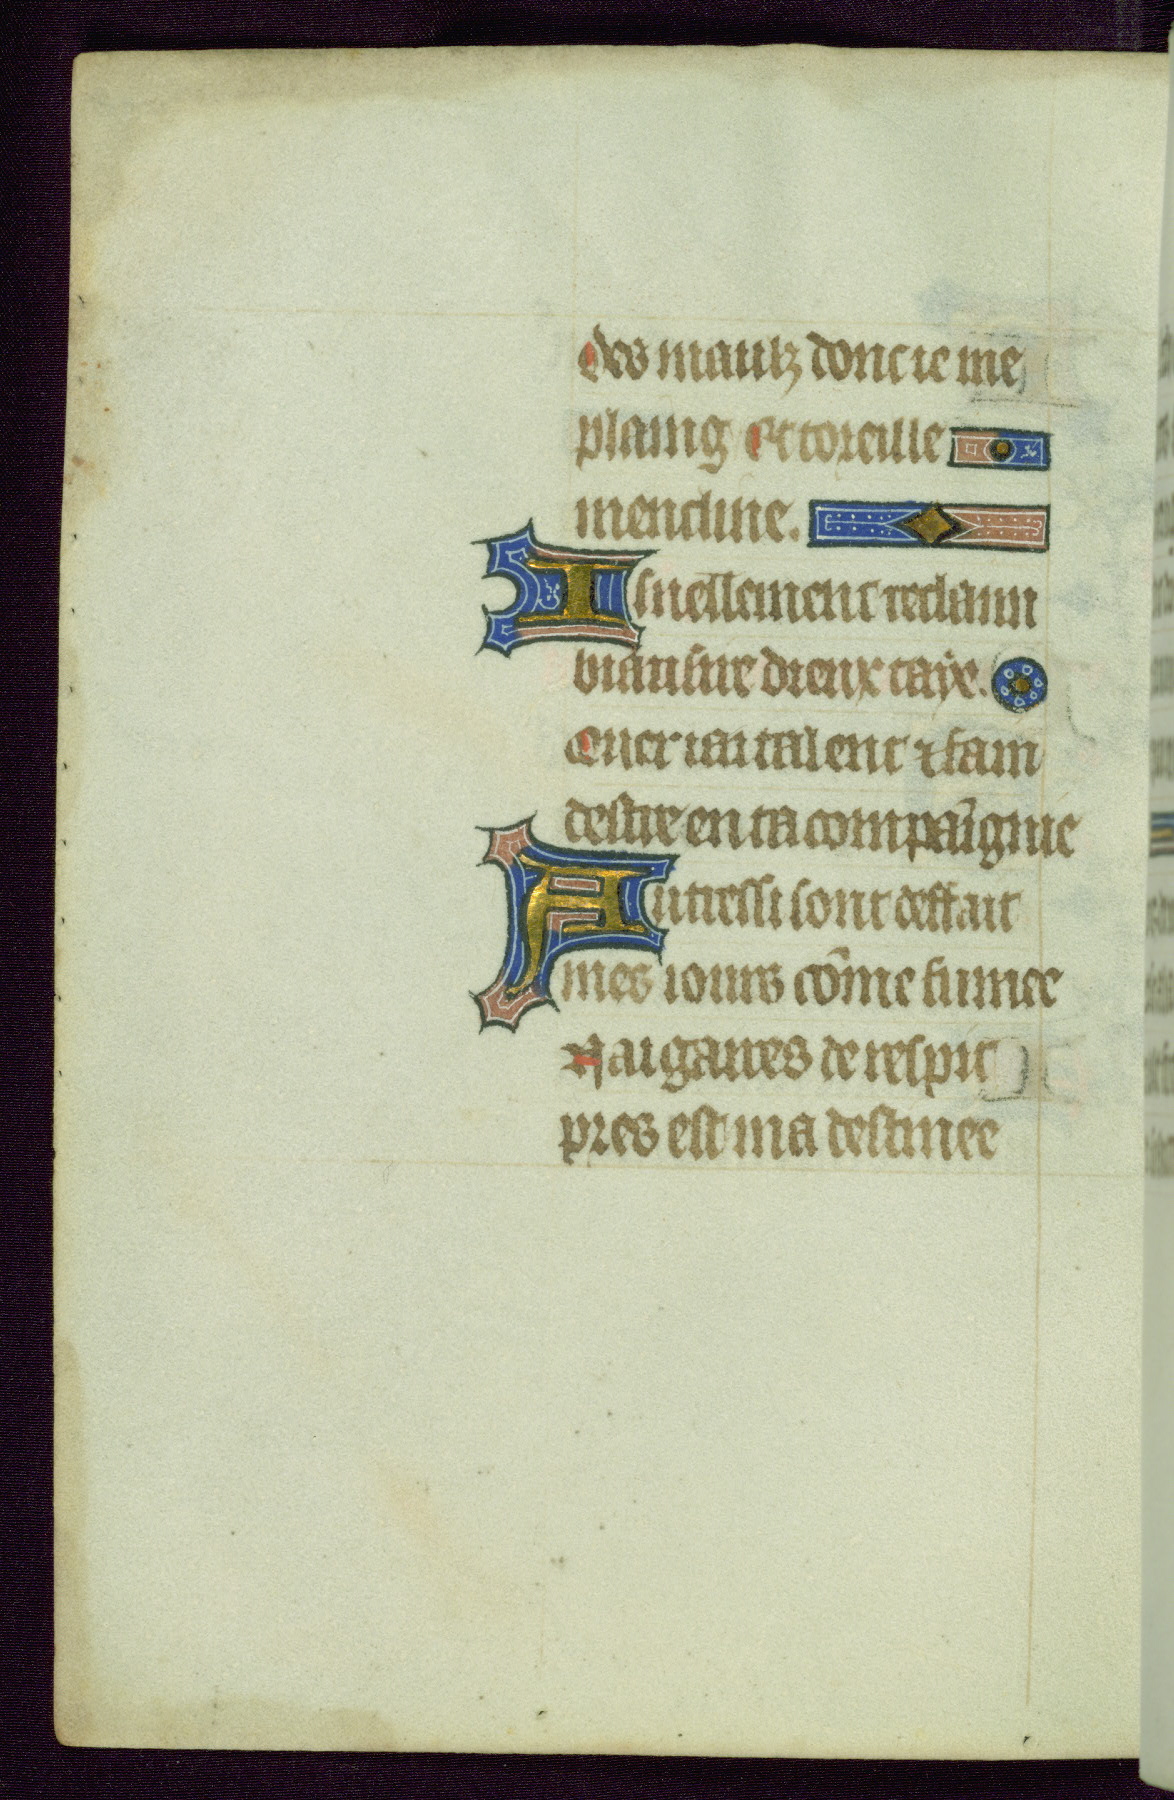 Des maulz dont ie me
plaing Et toreille
mencline.
Isnellement reclaim
biau sire dieux taye.
Encr iai talent ⁊ faim
destre en ta compaīgnie
Autressi sont deffait
mes iours cōme fumee
Nai gaires de respit
pres est ma destinee